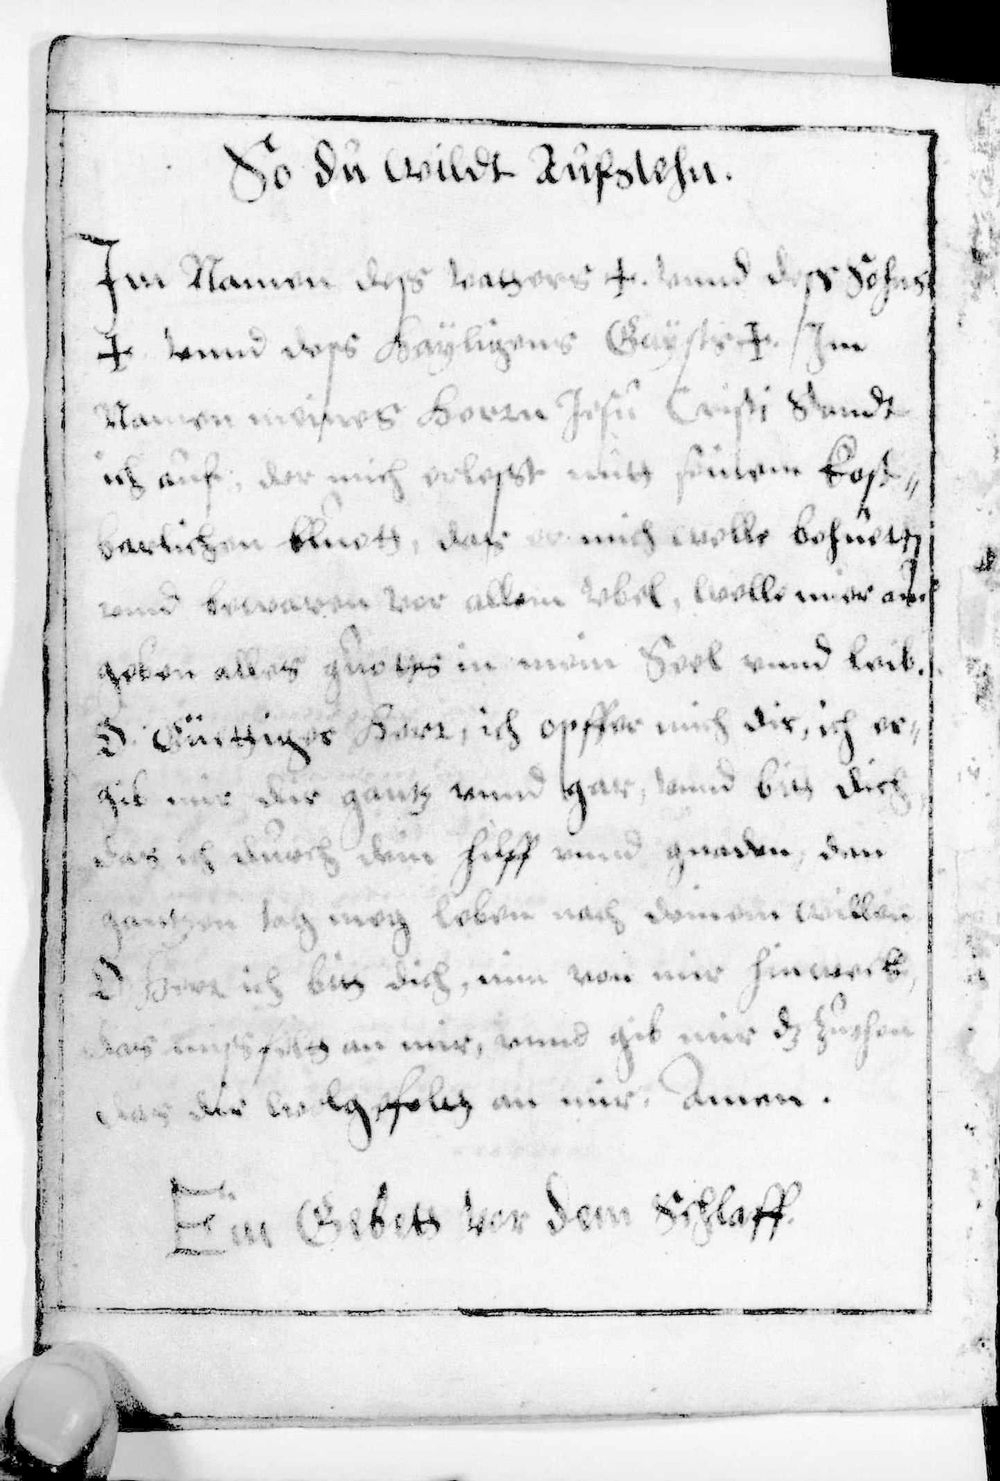 So du wildt Aufstehn.
Im Namen dess Vatters ✝. vnnd dess Sohns
✝ vnnd dess Hayligens Gaysts ✝. Im
Namen meines Herrn Jesu Cristi Standt
ich auf, der mich erlesst mitt seinem Kost-
barlichen bluett, das er mich welle behuett
vnnd bewaren vor allem Vbel, welle mier auch
geben alles guetts in mein Seel vnnd leib.
O. Güettiger Herr, ich opffer mich dir, ich er-
gib mir dir gantz vnnd gar, vnnd bitt dich,
das ich durch dein hilff vnnd gnaden, den
gantzen tag meg leben nach deinem willen
O Herr ich bitt dich, nim von mir hinweck,
das missfelt an mir, vnnd gib mir dz
das dir wolgefelt an mir. Amen.
Ein Gebett vor dem Schlaff.